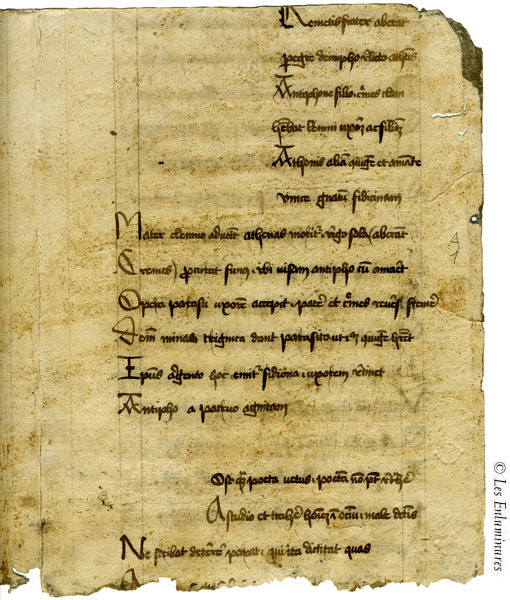 Remetis frater aberat
peregre demipho relicto athenis
Antiphone filio cremes clam
habebat lemni uxorem ac filiam
Athenis aliam quigem et amante
unice gnatum fidicinam
Mater elemno advenit athenas moritur virgo sola (aberant
Cremes) procurat funus ubi visem antipho cum amaret
Opera parasiti uxorem accepit pater et cremes reversi fremere
Dein minas triginta dant parasito ut quigem haberet
Ipsus argento hoc emitur fidicina uxorem retinet
Antipho a patruo agnitam
Ost quam poeta vetus poetam non potest retrahere
A studio et trahere hominem in otium male dictis
Ne scribat deterrere parat qui ita dictitat quas
© Les Enluminures